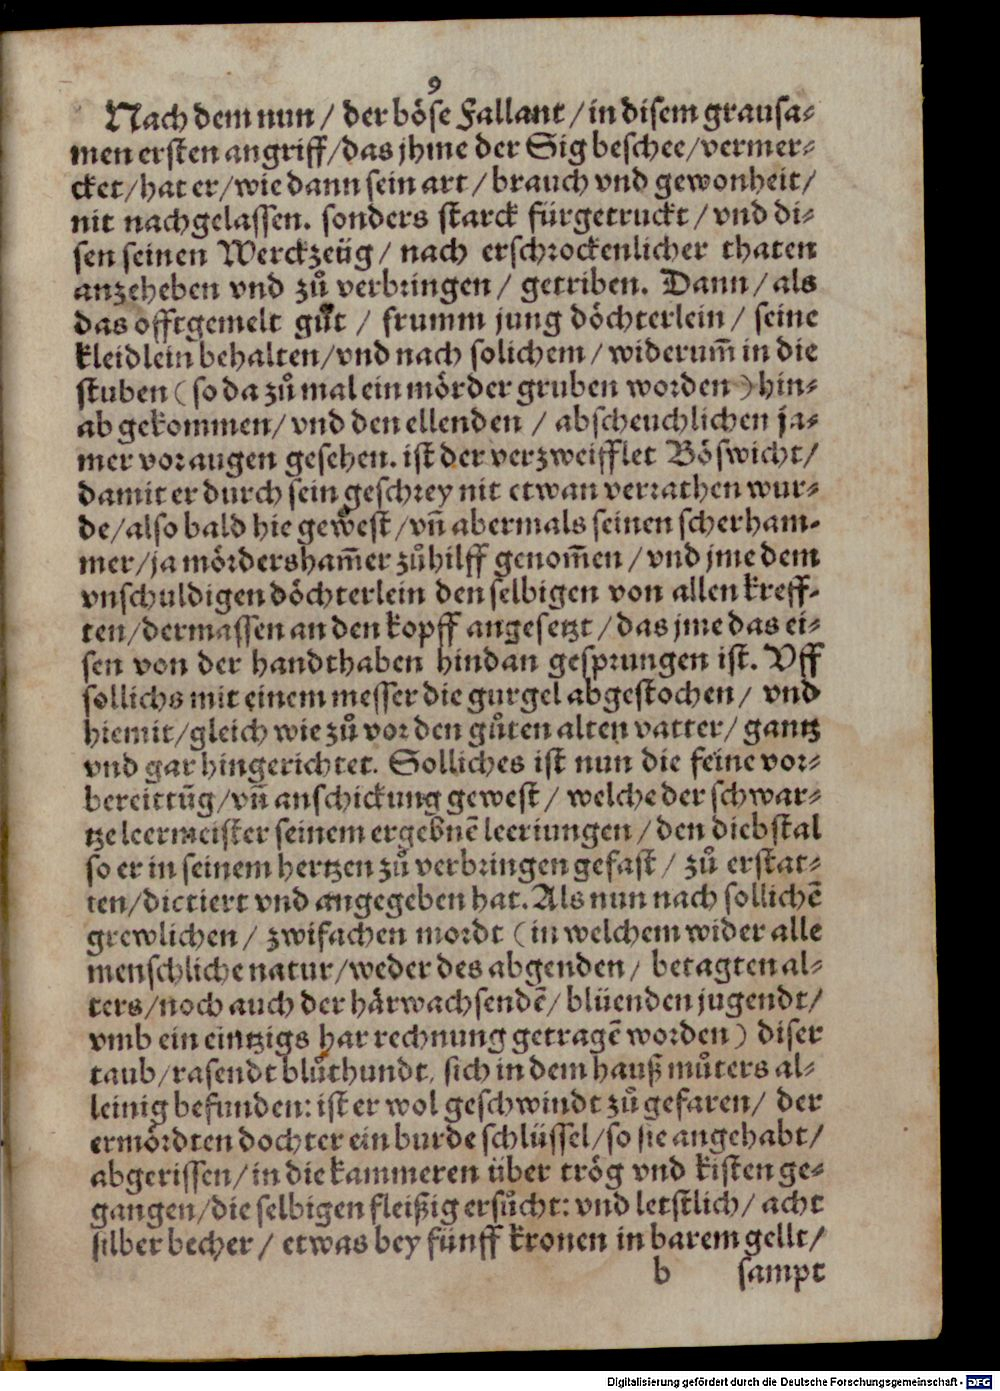 9
Nach dem nun / der böse Fallant / in disem grausa⸗
men ersten angriff / das jhme der Sig beschee / vermer⸗
cket / hat er / wie dann sein art / brauch vnd gewonheit /
nit nachgelassen. sonders starck fürgetruckt / vnd di⸗
sen seinen Werckzeüg / nach erschrockenlicher thaten
anzeheben vnd zů verbringen / getriben. Dann / als
das offtgemelt gůt / frumm jung döchterlein / seine
kleidlein behalten / vnd nach solichem / widerum̃ in die
stuben ( so da zů mal ein mörder gruben worden ) hin⸗
ab gekommen / vnd den ellenden / abscheuchlichen ja⸗
mer vor augen gesehen. ist der verzweifflet Böswicht /
damit er durch sein geschrey nit etwan verrathen wur⸗
de / also bald hie gewest / vñ abermals seinen scherham⸗
mer / ja mördersham̃er zůhilff genom̃en / vnd jme dem
vnschuldigen döchterlein den selbigen von allen kreff⸗
ten / dermassen an den kopff angesetzt / das jme das ei⸗
sen von der handthaben hindan gesprungen ist. Vff
sollichs mit einem messer die gurgel abgestochen / vnd
hiemit / gleich wie zů vor den gůten alten vatter / gantz
vnd gar hingerichtet. Solliches ist nun die feine vor⸗
bereittũg / vñ anschickung gewest / welche der schwar⸗
tze leermeister seinem ergebnẽ leeriungen / den diebstal
so er in seinem hertzen zů verbringen gefast / zů erstat⸗
ten / dictiert vnd angegeben hat. Als nun nach sollichẽ
grewlichen / zwifachen mordt ( in welchem wider alle
menschliche natur / weder des abgenden / betagten al⸗
ters / noch auch der härwachsendẽ / blüenden jugendt /
vmb ein eintzigs har rechnung getragẽ worden ) diser
taub / rasendt blůthundt, sich in dem hauß můters al⸗
leinig befunden: ist er wol geschwindt zů gefaren / der
ermördten dochter ein burde schlüssel / so sie angehabt /
abgerissen / in die kammeren über trög vnd kisten ge⸗
gangen / die selbigen fleißig ersůcht: vnd letstlich / acht
silber becher / etwas bey fünff kronen in barem gellt /
b sampt
Digitalisierung gefördert durch die Deutsche Forschungsgemeinschaft - DFG